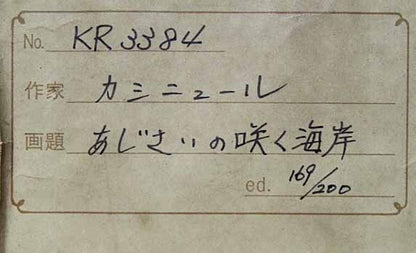 No. KR3384
作家 カシニョール
画題 あじさいの咲く海岸
ed. 169/200